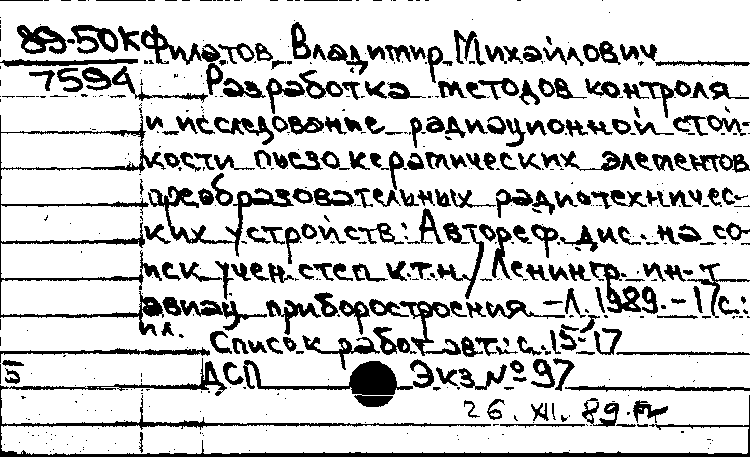 89-50К Филатов, Владимир Михайлович
7594 Разработка методов контроля
и исследование радиационной стой-
кости пьезокерамических элементов
преобразовательных радиотехничес-
ких устройств: Автореф. дис. на со-
иск учен. степ к.т.н. / Ленингр. ин-т
авиац. приборостроения - Л. 1989. - 17 с.:
ил.
Список работ авт.: с. 15-17
ДСП Экз № 97
26. XII. 89